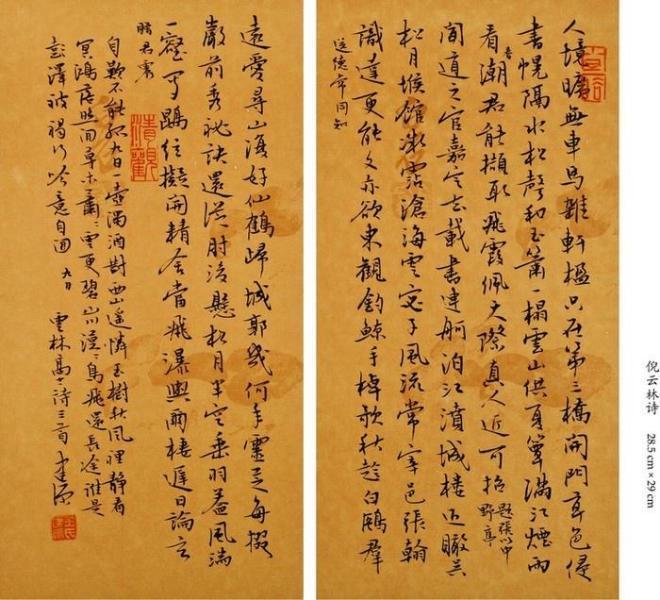 人境曠無車馬雜軒楹只在第三橋開門草色侵
書幌隔水松聲和玉簫一榻雲山供夏簟滿江煙雨
看春潮君能擷取飛霞佩天際真人近可招 題張以中
野亭
聞道之官嘉定去載書連舸泊江濆城樓近瞰吳
松月堠館微霑滄海雲宓子風流常宰邑張翰
識達更能文亦欲東觀釣鯨手棹歌秋趁白鷗群
送德常同知
遠愛尋山復好仙鶴歸城郭幾何年靈芝每掇
巖前秀祕訣還從肘後懸松月半空垂羽蓋風湍
一壑寫鵾弦擬開精舍當飛瀑與爾棲遲日論玄
自歎不能孤九日一壺濁酒對西山遙憐玉樹秋風裡靜看
冥鴻落照間草木蕭蕭雲更碧山川漠漠鳥飛還長途誰是
彭澤被褐行吟意自閑 九日 雲林高士詩三首
清觀
倪云林诗 28.5 cm × 29 cm